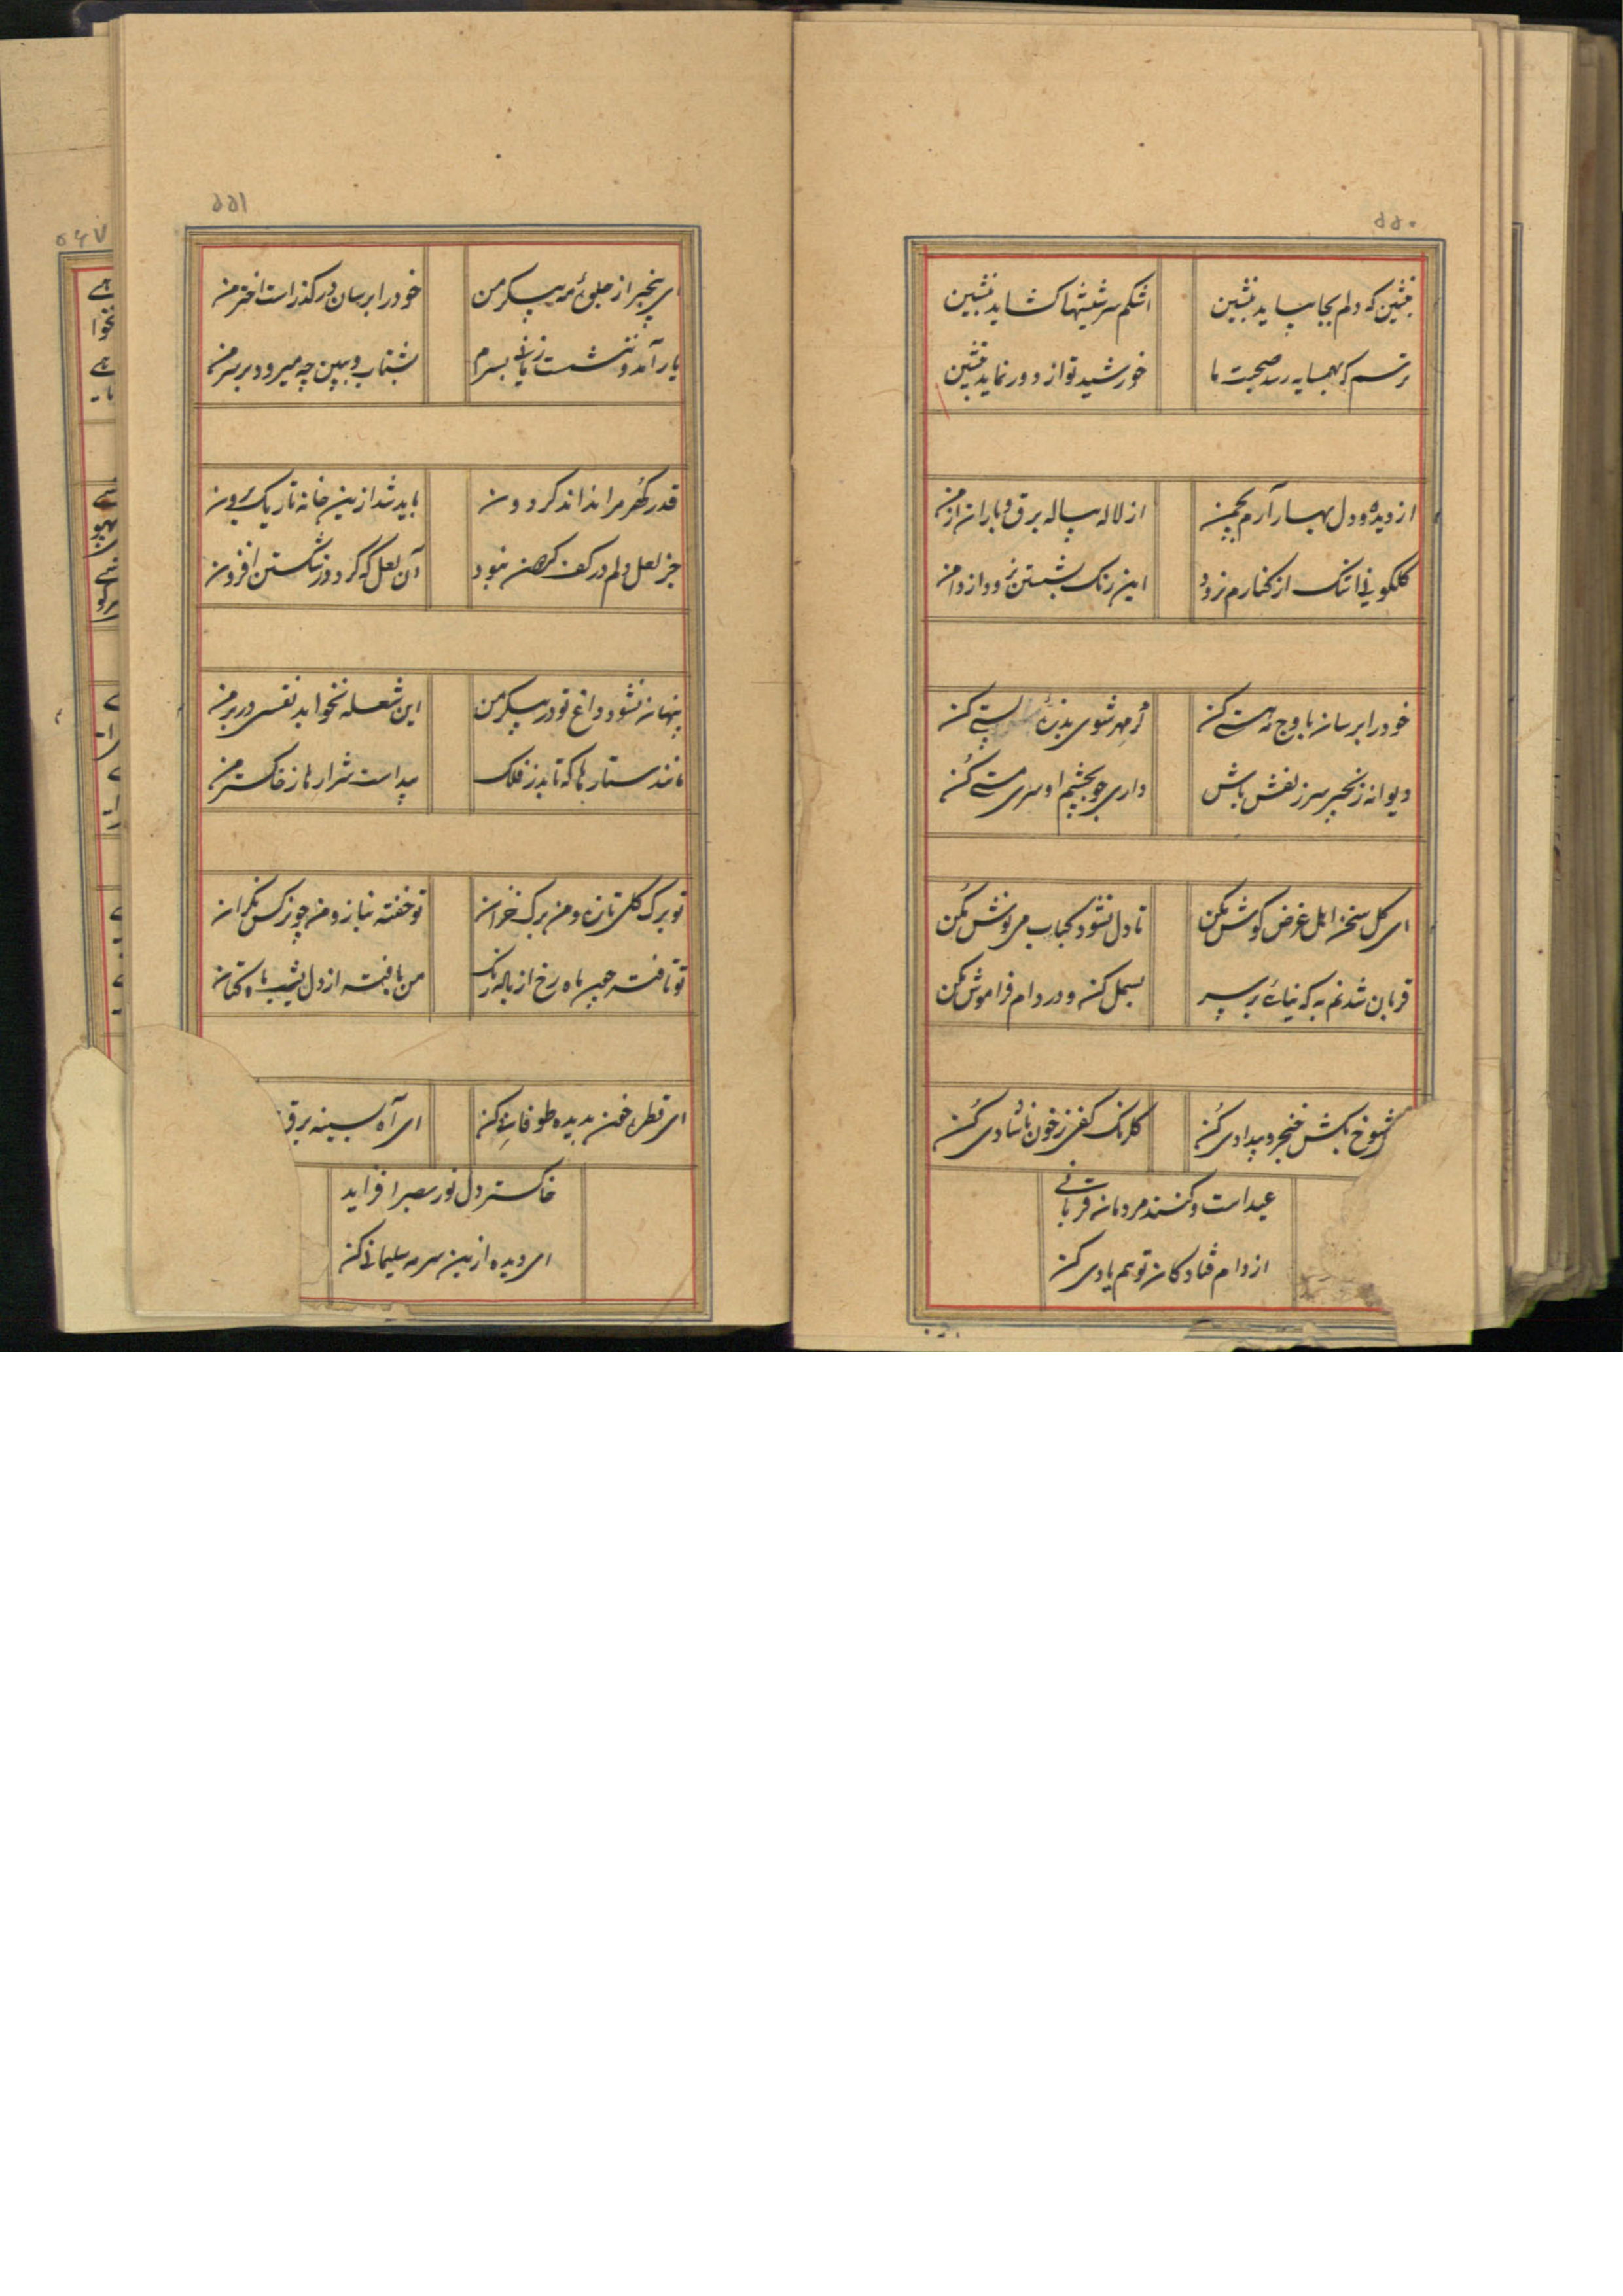 ۵۵۰
بنشین که دلم بجا بیاید بنشین
اشکم سر شیشها کشاید بنشین
ترسم که بهمسایه رسد صحبت ما
خورشید تو از دور نماید بنشین
از دیده و دل بهار آرم بچمن
از لاله پیاله برق و باران از من
کلکونی اشک از کنارم نرود
این رنک بشستن نرود از دامن
خود را برسان باوج مه هستی کن
کر مهر شوی بذره پستی کن
دیوانه زنجیر سر زلفش باش
داری چو بچشم او سری مستی کن
ای کل سخن اهل غرض کوش مکن
تا دل نشود کباب می نوش مکن
قربان شدنم به که نیائی بر سر
بسمل کن و در دام فراموش مکن
شوخ بکش خنجر و بیدادی کن
کلرنک کفن ز خون ناشادی کن
عید است و کنند مردمان قربانی
از دام فتادکان تو هم یادی کن
۵۵۱
ای بیخبر از جلوهٔ مه پیکر من
خود را برسان در کذر است اختر من
یار آمد و ننشست زمانی بسرم
بشتاب و ببین چه میرود بر سر من
قدر کهر مرا نداند کردون
باید شد ازین خانه تاریک برون
جز لعل دلم در کف من نبود
آن لعل که کردد ز شکستن افزون
پنهان نشود داغ تو در پیکر من
این شعله نخوابد نفسی در بر من
مانند ستارها که تابد ز فلک
پیداست شرارها ز خاکستر من
تو برک کلی تازه و من برک خزان
تو خفته بناز و من چو نرکس نکران
تو تافته چون ماه رخ از هاله رنک
من بافته از دل بشب ماه کتان
ای قطره خون بدیده طوفانی کن
ای آه بسینه برق
خاکستر دل نور بصر افزاید
ای دیده ازین سرمه سلیمانی کن
۵۶۷